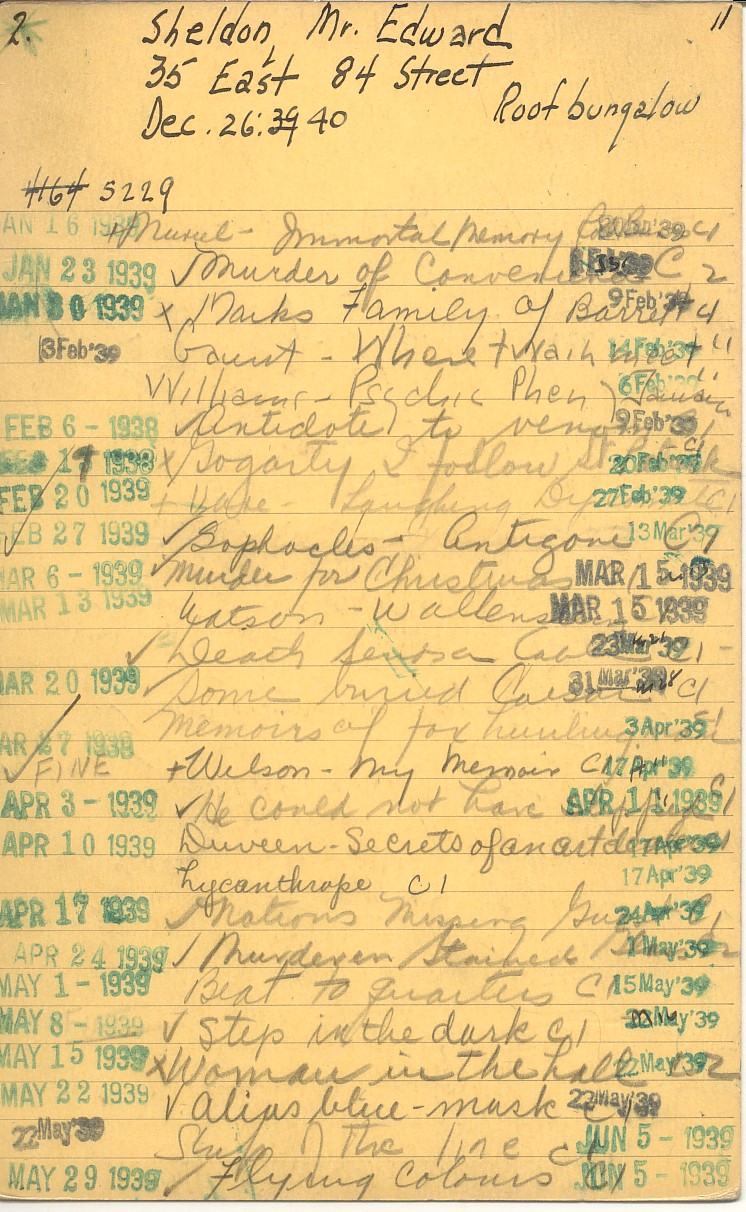 2. Sheldon, Mr. Edward 11
35 East 84 Street
Dec. 26:39 40 Roof bungalow
#164 S229
JAN 16 1939 Immortal Memory C1
JAN 23 1939 ✓ Murder of Convenience C 2
JAN 30 1939 x Marks Family of Barrett 9Feb'39 C1
3Feb'39 Gaunt - Where 14Feb'39
Williams - Psychic Phen 6Feb'39
FEB 6 - 1938 ✓ Antidote to venom 9Feb'39
1938 x Gogarty I follow St Patrick 20Feb'39 C1
FEB 20 1939 + Laughing 27Feb'39 C1
FEB 27 1939 ✓ Sophocles - Antigone 13Mar'39
MAR 6 - 1939 Murder for Christmas MAR 15 1939
MAR 13 1939 Watson - MAR 15 1939
✓ Death 23Mar'39 C1
MAR 20 1939 ✓ Some buried Caesar 31Mar'39 C1
Memoirs of fox hunting 3Apr'39
MAR 27 1938
✓ FINE + Wilson - My Memoir C1 17Apr'39
APR 3 - 1939 ✓ He could not have slipped APR 11 1939 C1
APR 10 1939 Duveen - Secrets of an art dealer 17Apr'39
Lycanthrope C1 17Apr'39
APR 17 1939 ✓ Motions Missing 24Apr'39 C1
APR 24 1939 ✓ Murder in Stained 1May'39
MAY 1 - 1939 Beat to quarters C1 15May'39
MAY 8 - 1939 ✓ Step in the dark C1 May'39
MAY 15 1939 x Woman in the hall 22May'39 C2
MAY 22 1939 ✓ Alias blue-mask 22May'39
22May'39 Ship of the line C1 JUN 5 - 1939
MAY 29 1939 ✓ Flying Colours C1 JUN 5 - 1939